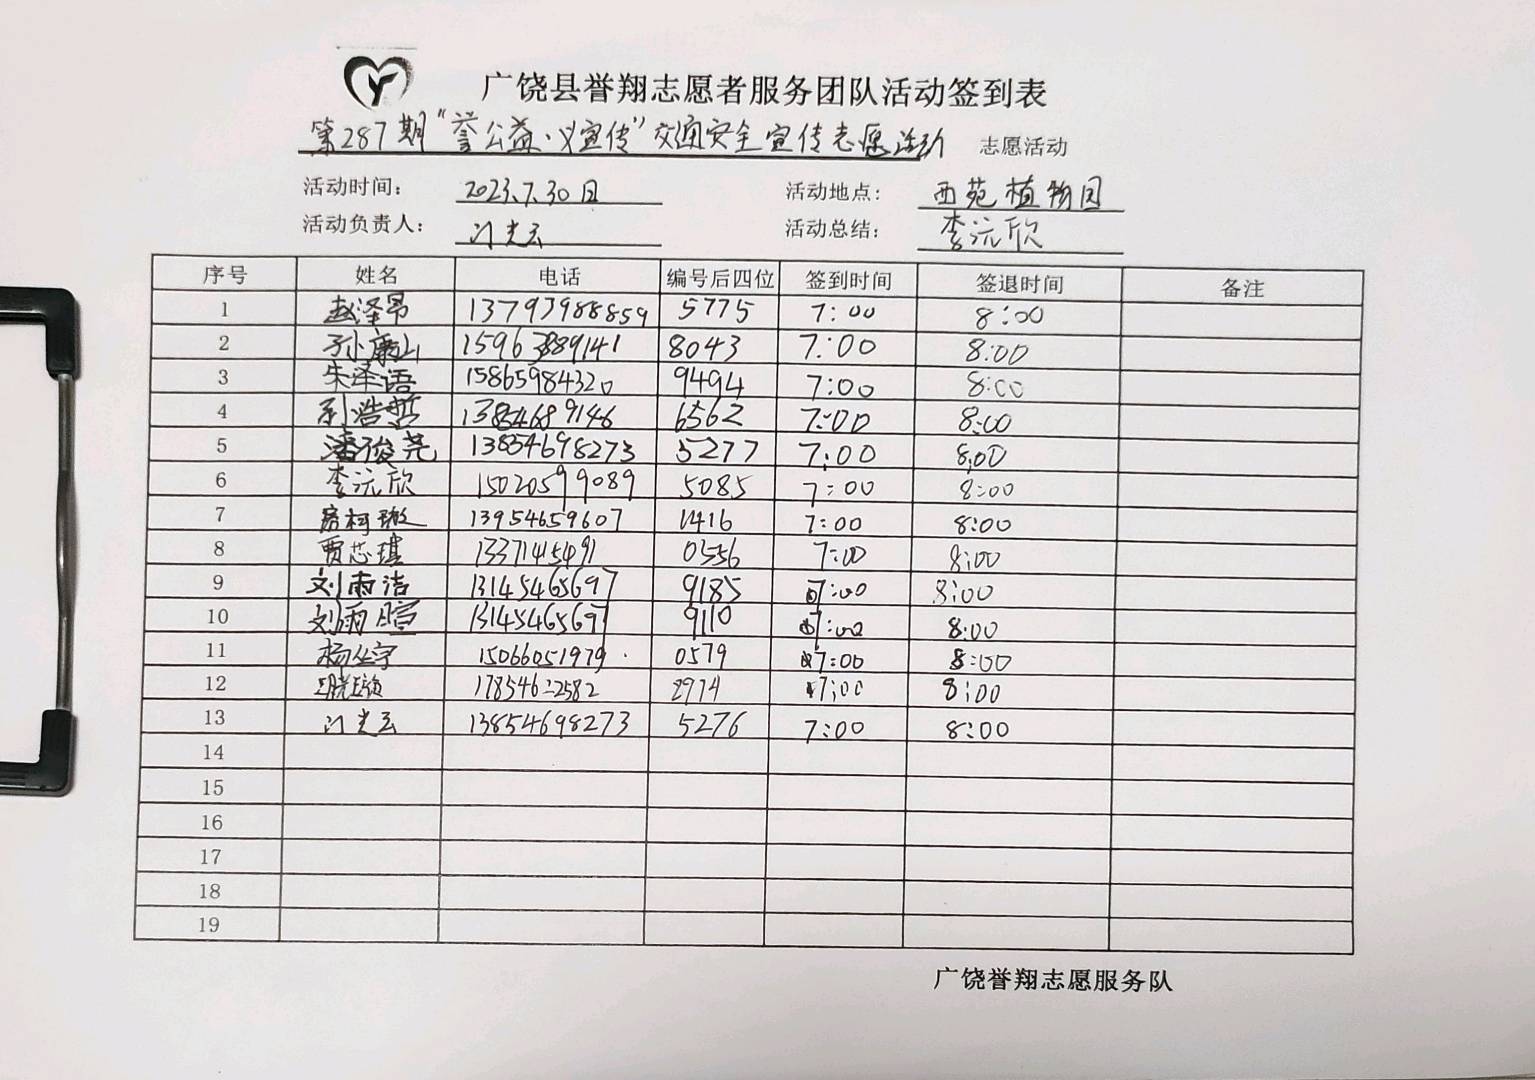 广饶县誉翔志愿者服务团队活动签到表
第287期“誉公益·义宣传”交通安全宣传志愿活动 志愿活动
活动时间： 2023.7.30日 活动地点： 西苑植物园
活动负责人： 光云 活动总结： 李沅欣
序号 姓名 电话 编号后四位 签到时间 签退时间 备注
1 赵泽昂 13793988859 5775 7:00 8:00
2 孙康山 15963889141 8043 7:00 8:00
3 朱泽语 15865984320 9494 7:00 8:00
4 刘浩哲 13854689146 6562 7:00 8:00
5 潘俊尧 13854698273 5277 7:00 8:00
6 李沅欣 15020599089 5085 7:00 8:00
7 柯璇 13954659607 1416 7:00 8:00
8 贾芯琪 13371415491 0556 7:00 8:00
9 刘雨洁 13145465697 9185 7:00 8:00
10 刘雨暄 13145465697 9110 7:00 8:00
11 杨丛宇 15066051979 0579 7:00 8:00
12 2974 7:00 8:00
13 光云 13854698273 5276 7:00 8:00
14
15
16
17
18
19
广饶誉翔志愿服务队